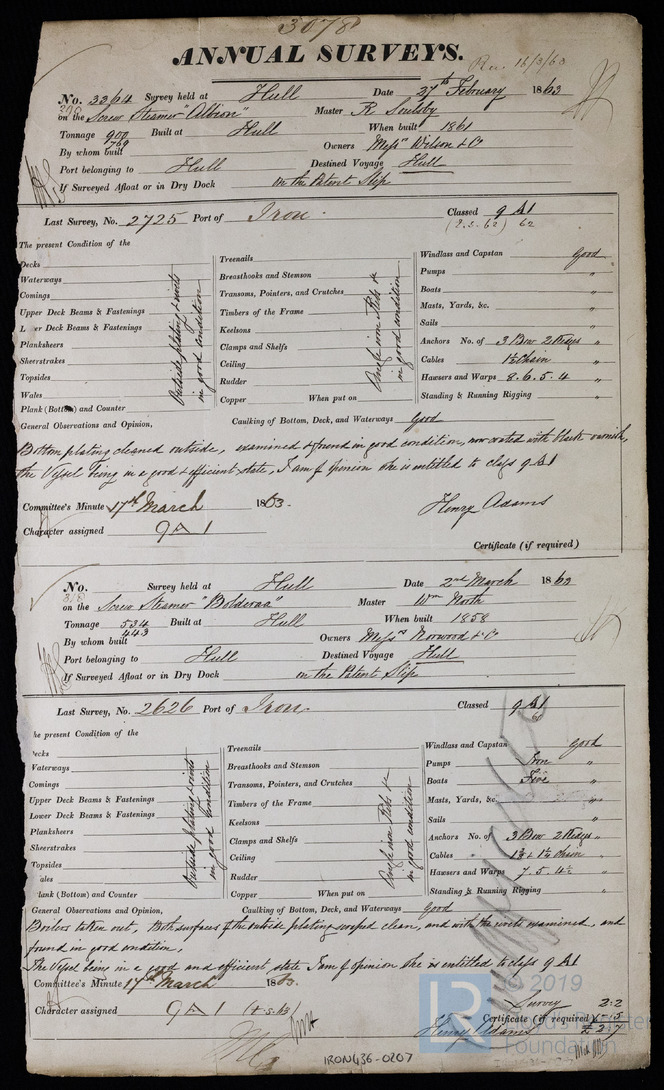 3078
ANNUAL SURVEYS.
Rec 16/3/63
No. 3364 Survey held at Hull Date 27th February 1863
on the Screw Steamer "Albion" Master R Soulsby
Tonnage 900 Built at Hull When built 1861
769
By whom built Owners Messrs Wilson & Co
Port belonging to Hull Destined Voyage Hull
If Surveyed Afloat or in Dry Dock on the Patent Slip
Last Survey, No. 2725 Port of Iron. Classed 9 A1
(2.2.62) 62
The present Condition of the
Decks
Waterways
Comings
Upper Deck Beams & Fastenings
Lower Deck Beams & Fastenings
Planksheers
Sheerstrakes
Topsides
Wales
Plank (Bottom) and Counter
Outside plating & rivets
in good condition
Treenails
Breasthooks and Stemson
Transoms, Pointers, and Crutches
Timbers of the Frame
Keelsons
Clamps and Shelfs
Ceiling
Rudder
Copper When put on
Angle iron Ribs &c
in good condition
Windlass and Capstan Good
Pumps "
Boats "
Masts, Yards, &c. "
Sails "
Anchors No. of 3 Bow 2 Kedges "
Cables 1½ Chain "
Hawsers and Warps 8.6.5.4 "
Standing & Running Rigging "
General Observations and Opinion, Caulking of Bottom, Deck, and Waterways Good
Bottom plating cleaned outside, examined & found in good condition, now coated with black varnish,
the Vessel being in a good & efficient state, I am of opinion she is entitled to class 9 A1
Committee's Minute 17th March 1863.
Henry Adams
Character assigned 9 A 1
Certificate (if required)
No. Survey held at Hull Date 2nd March 1863
on the Screw Steamer "Bolderaa" Master Wm North
Tonnage 534 Built at Hull When built 1858
443
By whom built Owners Messrs Norwood & Co
Port belonging to Hull Destined Voyage Hull
If Surveyed Afloat or in Dry Dock on the Patent Slip
Last Survey, No. 2626 Port of Iron. Classed 9 A1
The present Condition of the
Decks
Waterways
Comings
Upper Deck Beams & Fastenings
Lower Deck Beams & Fastenings
Planksheers
Sheerstrakes
Topsides
Wales
Plank (Bottom) and Counter
Outside plating & rivets
in good condition
Treenails
Breasthooks and Stemson
Transoms, Pointers, and Crutches
Timbers of the Frame
Keelsons
Clamps and Shelfs
Ceiling
Rudder
Copper When put on
Angle iron Ribs &c
in good condition
Windlass and Capstan Good
Pumps Iron "
Boats Five "
Masts, Yards, &c. "
Sails "
Anchors No. of 3 Bow 2 Kedges "
Cables " Chain "
Hawsers and Warps 7.5.4½ "
Standing & Running Rigging "
General Observations and Opinion, Caulking of Bottom, Deck, and Waterways Good
Boilers taken out, Both surfaces of the outside plating scraped clean, and with the rivets examined, and
found in good condition,
The Vessel being in a good and efficient state I am of opinion she is entitled to class 9 A1
Committee's Minute 17th March 1863.
Character assigned 9 A 1
Survey 2:2
Certificate (if required)
Henry Adams
IRON436-0207
LR © 2019
Lloyd's Register
Foundation